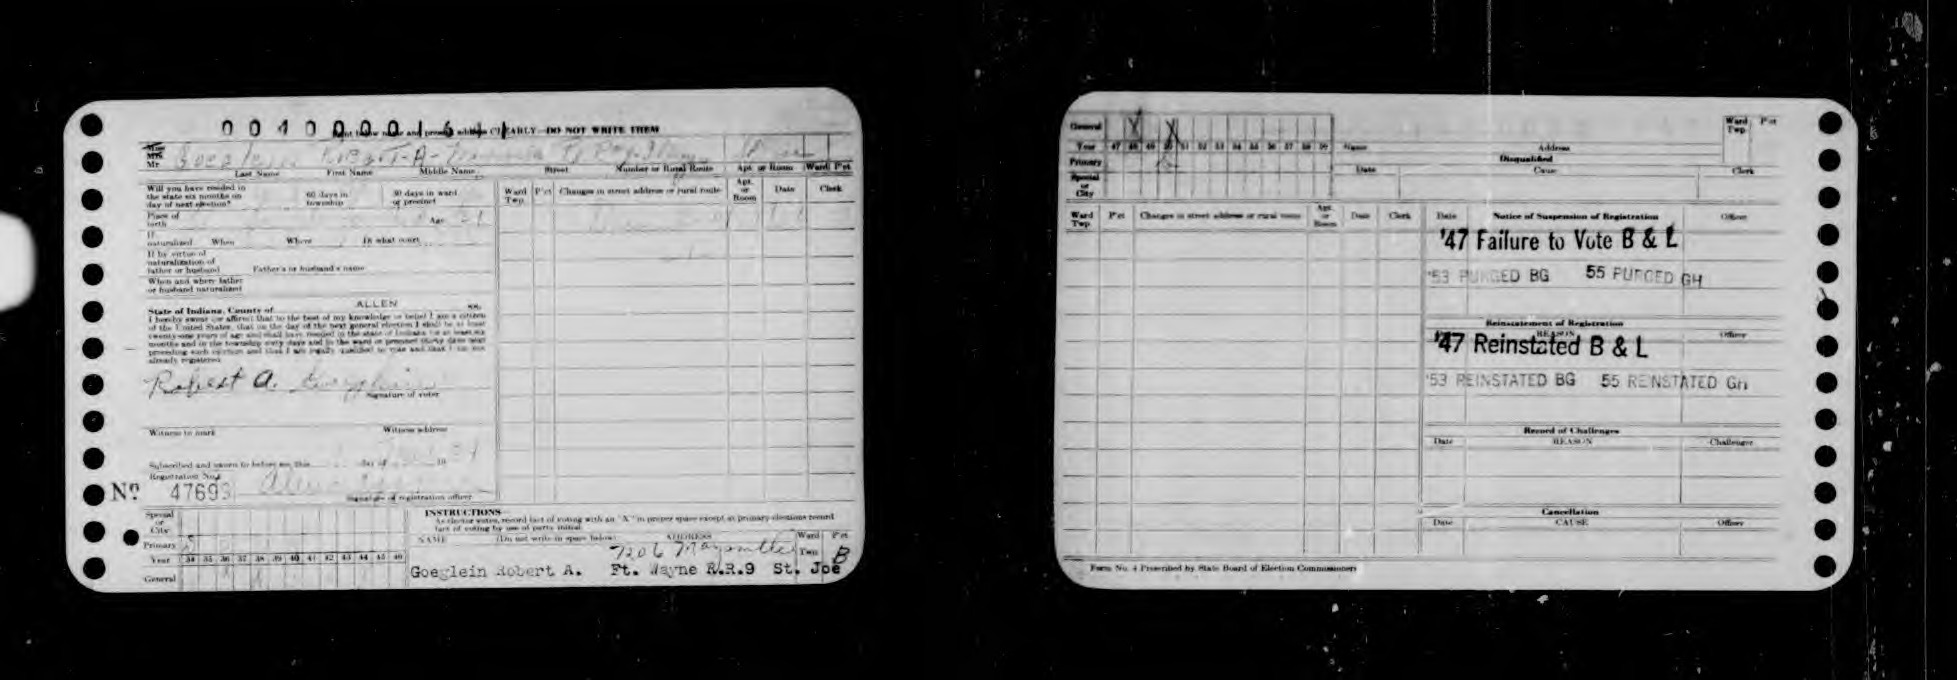 0 0 4 0 0 0 0 1 6 1 1
Print below name and present address CLEARLY—DO NOT WRITE THEM
Miss
Mrs.
Mr. Goeglein Robert-A-
Last Name First Name Middle Name Street Number or Rural Route Apt. or Room Ward P'ct
Will you have resided in the state six months on day of next election? 60 days in township 30 days in ward or precinct
Ward Twp. P'ct Changes in street address or rural route Apt. or Room Date Clerk
Place of birth Age
If naturalized When Where In what court
If by virtue of naturalization of father or husband Father's or husband's name
When and where father or husband naturalized
State of Indiana, County of ALLEN ss.
I hereby swear (or affirm) that to the best of my knowledge or belief I am a citizen
of the United States, that on the day of the next general election I shall be at least
twenty-one years of age and shall have resided in the state of Indiana for at least six
months and in the township sixty days and in the ward or precinct thirty days next
preceding such election and that I am legally qualified to vote and that I am not
already registered.
Robert A. Goeglein
Signature of voter
Witness to mark Witness address
Subscribed and sworn to before me this day of 19
Registration No.
No. 47693
Signature of registration officer
Special or City
Primary
Year 34 35 36 37 38 39 40 41 42 43 44 45 46
General
INSTRUCTIONS—
As elector votes, record fact of voting with an "X" in proper space except at primary elections record
fact of voting by use of party initial.
NAME (Do not write in space below) ADDRESS Ward P'ct
7206 Maysville Twp. B
Goeglein Robert A. Ft. Wayne R.R.9 St. Joe
General X X
Year 47 48 49 50 51 52 53 54 55 56 57 58 59
Primary
Special or City
Name Address Ward Twp. P'ct
Disqualified
Date Cause Clerk
Ward Twp. P'ct Changes in street address or rural route Apt. or Room Date Clerk
Date Notice of Suspension of Registration Officer
'47 Failure to Vote B & L
'53 PURGED BG 55 PURGED GH
Reinstatement of Registration
REASON Officer
'47 Reinstated B & L
'53 REINSTATED BG 55 REINSTATED GH
Record of Challenges
Date REASON Challenger
Cancellation
Date CAUSE Officer
Form No. 4 Prescribed by State Board of Election Commissioners